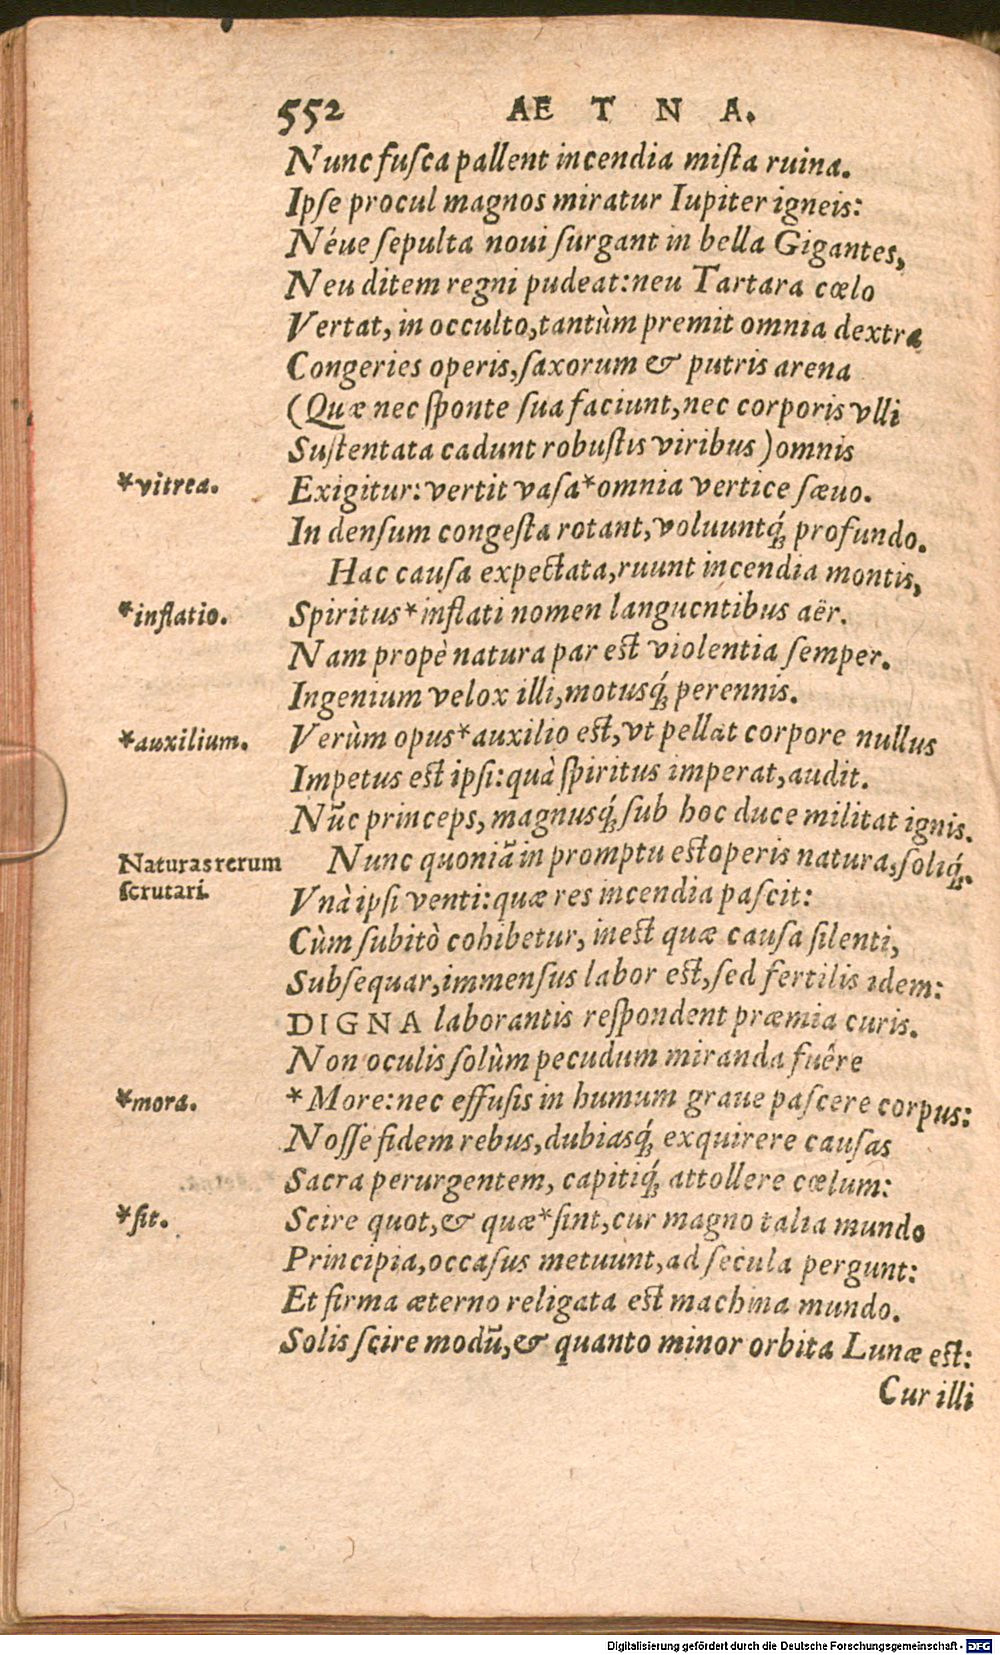 552 AE T N A.
Nunc fuſca pallent incendia miſta ruina.
Ipſe procul magnos miratur Iupiter igneis:
Néue ſepulta noui ſurgant in bella Gigantes,
Neu ditem regni pudeat: neu Tartara cœlo
Vertat, in occulto, tantùm premit omnia dextra
Congeries operis, ſaxorum & putris arena
(Quæ nec ſponte ſua faciunt, nec corporis vlli
Suſtentata cadunt robuſtis viribus) omnis
*vitrea. Exigitur: vertit vaſa*omnia vertice ſæuo.
In denſum congeſta rotant, voluuntq́; profundo.
Hac cauſa expectata, ruunt incendia montis,
*inflatio. Spiritus*inflati nomen languentibus aër.
Nam propè natura par est violentia ſemper.
Ingenium velox illi, motusq́; perennis.
*auxilium. Verùm opus*auxilio est, vt pellat corpore nullus
Impetus est ipſi: quà ſpiritus imperat, audit.
Nūc princeps, magnusq́; ſub hoc duce militat ignis.
Naturas rerum Nunc quoniā in promptu est operis natura, ſoliq́;.
ſcrutari. Vnà ipſi venti: quæ res incendia paſcit:
Cùm ſubitò cohibetur, inest quæ cauſa ſilenti,
Subſequar, immenſus labor est, ſed fertilis idem:
DIGNA laborantis reſpondent præmia curis.
Non oculis ſolùm pecudum miranda fuêre
*mora. *More: nec effuſis in humum graue paſcere corpus:
Noſſe fidem rebus, dubiasq́; exquirere cauſas
Sacra perurgentem, capitiq́; attollere cœlum:
*ſit. Scire quot, & quæ*ſint, cur magno talia mundo
Principia, occaſus metuunt, ad ſecula pergunt:
Et firma æterno religata est machina mundo.
Solis ſcire modū, & quanto minor orbita Lunæ est:
Cur illi
Digitalisierung gefördert durch die Deutsche Forschungsgemeinschaft - DFG